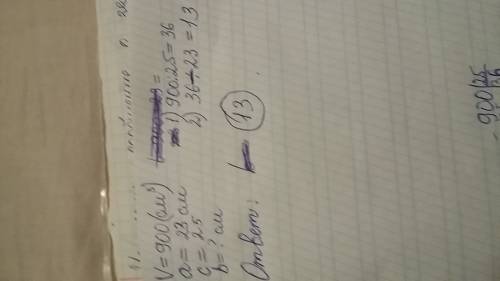 V = 900 (см³)
a = 23 см
c = 25
b = ? см
1) 900:25 = 36
2) 36 - 23 = 13
Ответ: 13
900|25
36